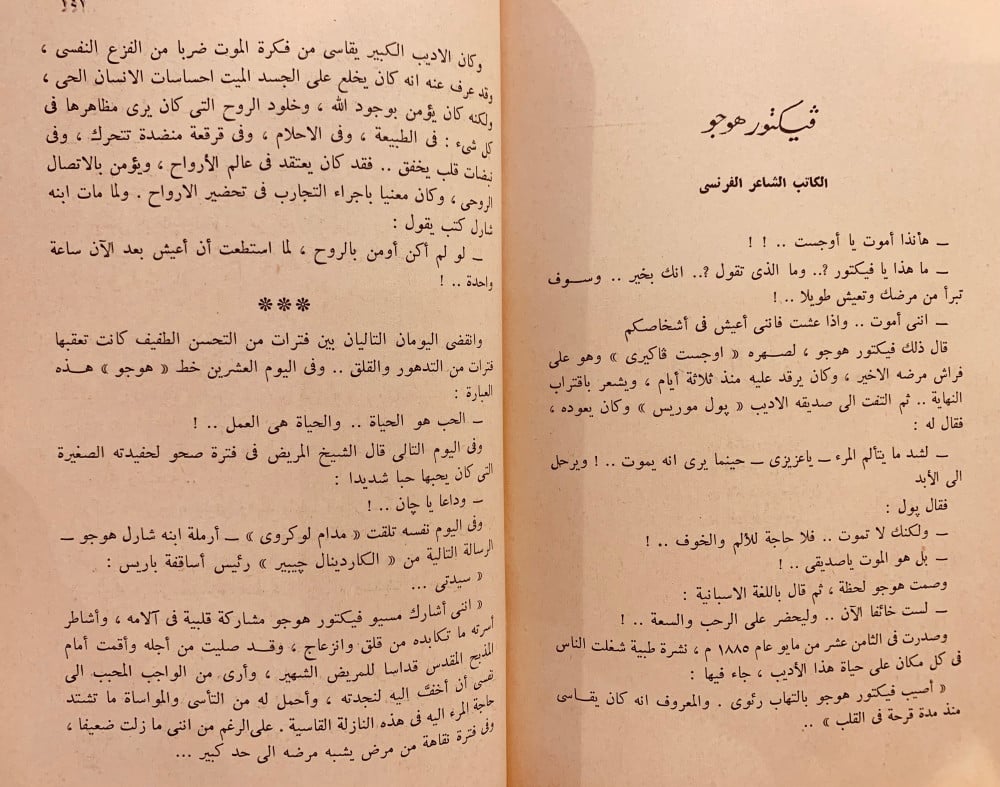 ڤيكتور هوجو
الكاتب الشاعر الفرنسى
ــ هأنذا أموت يا أوجست .. ! !
ــ ما هذا يا فيكتور ?.. وما الذى تقول ?.. انك بخير .. وســوف
تبرأ من مرضك وتعيش طويلا .. !
ــ اننى أموت .. واذا عشت فاننى أعيش فى أشخاصكم
قال ذلك فيكتور هوجو ، لصهره « اوجست ڤاكيرى » وهو على
فراش مرضه الاخير ، وكان يرقد عليه منذ ثلاثة أيام ، ويشعر باقتراب
النهاية .. ثم التفت الى صديقه الاديب « پول موريس » وكان يعوده ،
فقال له :
ــ لشد ما يتألم المرء ــ ياعزيزى ــ حينما يرى انه يموت .. ! ويرحل
الى الأبد
فقال پول :
ــ ولكنك لا تموت .. فلا حاجة للألم والخوف .. !
ــ بل هو الموت ياصديقى .. !
وصمت هوجو لحظة ، ثم قال باللغة الاسبانية :
ــ لست خائفا الآن .. وليحضر على الرحب والسعة .. !
وصدرت فى الثامن عشر من مايو عام ١٨٨٥ م ، نشرة طبية شغلت الناس
فى كل مكان على حياة هذا الأديب ، جاء فيها :
« أصيب فيكتور هوجو بالتهاب رئوى . والمعروف انه كان يقــاسى
منذ مدة قرحة فى القلب » ..
وكان الاديب الكبير يقاسى من فكرة الموت ضربا من الفزع النفسى ،
وقد عرف عنه انه كان يخلع على الجسد الميت احساسات الانسان الحى ،
ولكنه كان يؤمن بوجود الله ، وخلود الروح التى كان يرى مظاهرها فى
كل شىء : فى الطبيعة ، وفى الاحلام ، وفى قرقعة منضدة تتحرك ، وفى
نبضات قلب يخفق .. فقد كان يعتقد فى عالم الأرواح ، ويؤمن بالاتصال
الروحى ، وكان معنيا باجراء التجارب فى تحضير الارواح . ولما مات ابنه
شارل كتب يقول :
ــ لو لم أكن أومن بالروح ، لما استطعت أن أعيش بعد الآن ساعة
واحدة .. !
***
وانقضى اليومان التاليان بين فترات من التحسن الطفيف كانت تعقبها
فترات من التدهور والقلق .. وفى اليوم العشرين خط « هوجو » هــذه
العبارة :
ــ الحب هو الحياة .. والحياة هى العمل .. !
وفى اليوم التالى قال الشيخ المريض فى فترة صحو لحفيدته الصغيرة
التى كان يحبها حبا شديدا :
ــ وداعا يا چان .. !
وفى اليوم نفسه تلقت « مدام لوكروى » ــ أرملة ابنه شارل هوجو ــ
الرسالة التالية من « الكاردينال چيبير » رئيس أساقفة باريس :
« سيدتى ...
« اننى أشارك مسيو فيكتور هوجو مشاركة قلبية فى آلامه ، وأشاطر
أسرته ما تكابده من قلق وانزعاج ، وقــد صليت من أجله وأقمت أمام
المذبح المقدس قداسا للمريض الشهير ، وأرى من الواجب المحبب الى
نفسى أن أخفَّ إليه لنجدته ، وأحمل له من التأسى والمواساة ما تشتد
حاجة المرء اليه فى هذه النازلة القاسية . على الرغم من اننى ما زلت ضعيفا ،
وفى فترة نقاهة من مرض يشبه مرضه الى حد كبير ...